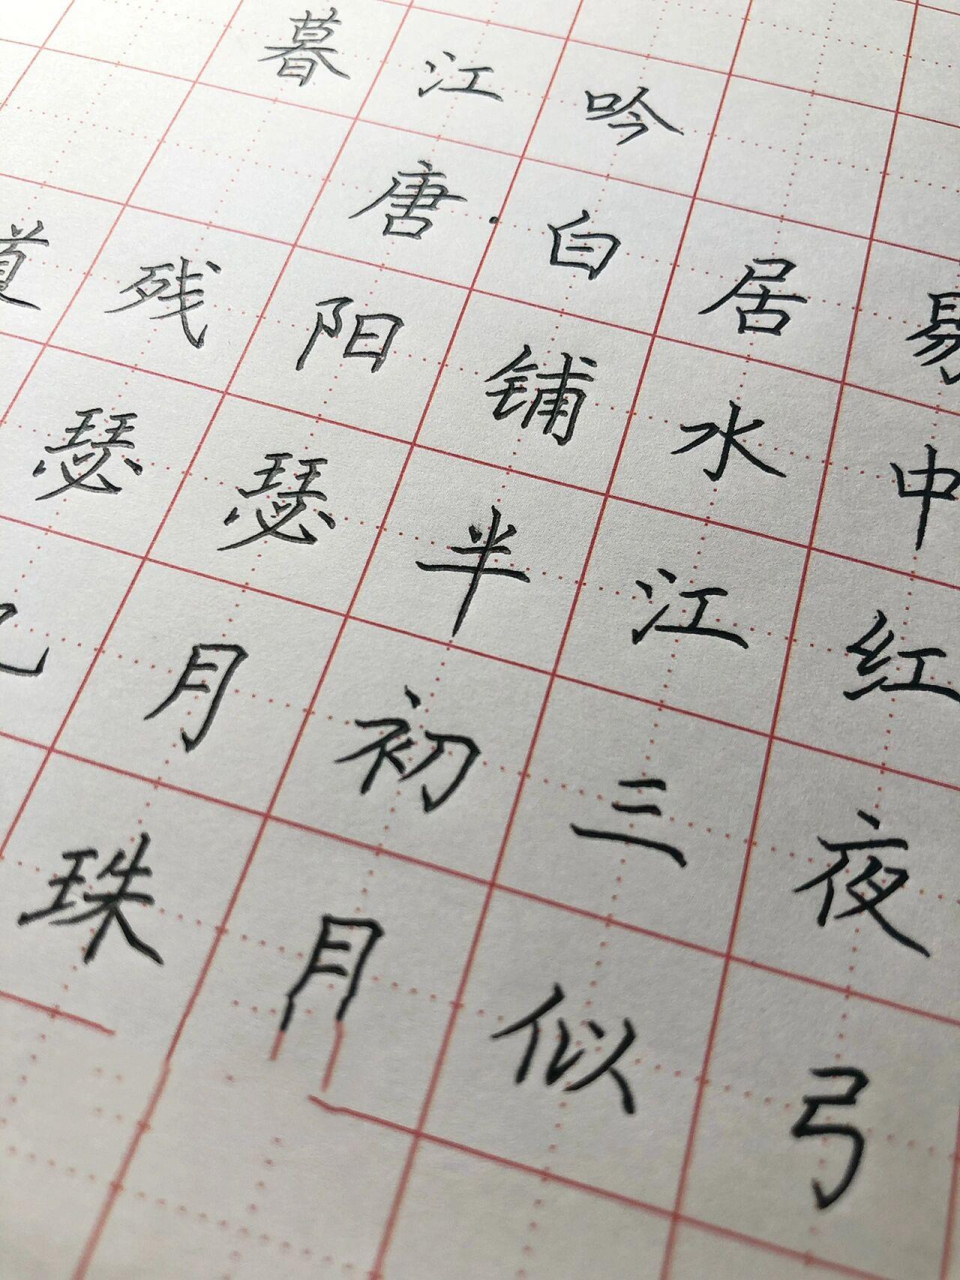 暮江吟
唐·白居易
道残阳铺水中
瑟瑟半江红
月初三夜
珠月似弓